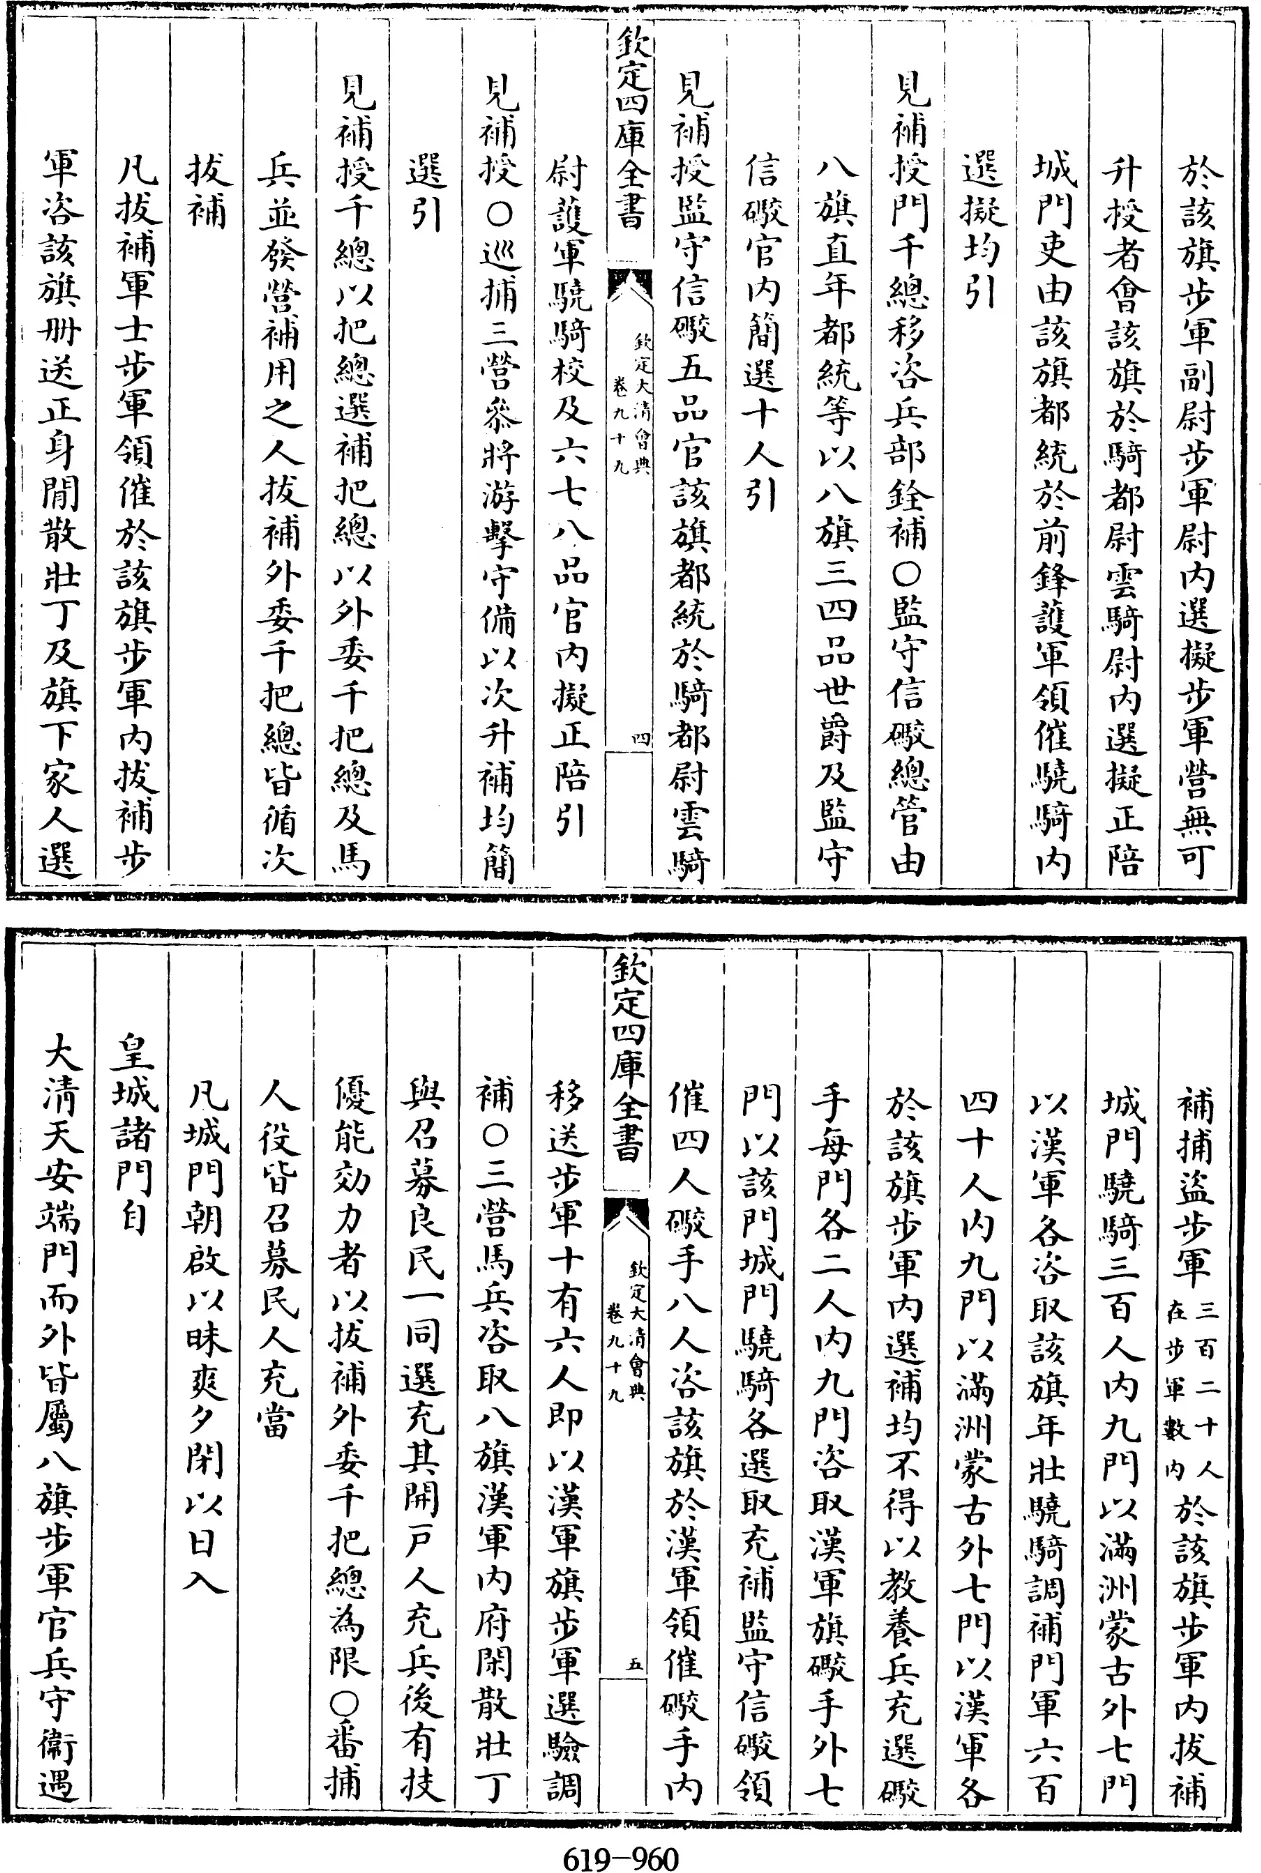 於該旗步軍副尉步軍尉内選擬步軍營無可
升授者會該旗於騎都尉雲騎尉内選擬正陪
城門吏由該旗都統於前鋒護軍領催驍騎内
選擬均引
見補授門千總移咨兵部銓補○監守信礮總管由
八旗直年都統等以八旗三四品世爵及監守
信礮官内簡選十人引
見補授監守信礮五品官該旗都統於騎都尉雲騎
欽定四庫全書
欽定大清會典
卷九十九
四
尉護軍驍騎校及六七八品官内擬正陪引
見補授○巡捕三營叅將游擊守備以次升補均簡
選引
見補授千總以把總選補把總以外委千把總及馬
兵並發營補用之人拔補外委千把總皆循次
拔補
凡拔補軍士步軍領催於該旗步軍内拔補步
軍咨該旗册送正身閒散壯丁及旗下家人選
補捕盜步軍三百二十人
在步軍數内於該旗步軍内拔補
城門驍騎三百人内九門以滿洲蒙古外七門
以漢軍各咨取該旗年壯驍騎調補門軍六百
四十人内九門以滿洲蒙古外七門以漢軍各
於該旗步軍内選補均不得以教養兵充選礮
手每門各二人内九門咨取漢軍旗礮手外七
門以該門城門驍騎各選取充補監守信礮領
催四人礮手八人咨該旗於漢軍領催礮手内
欽定四庫全書
欽定大清會典
卷九十九
五
移送步軍十有六人即以漢軍旗步軍選驗調
補○三營馬兵咨取八旗漢軍内府閑散壯丁
與召募良民一同選充其開户人充兵後有技
優能効力者以拔補外委千把總為限○番捕
人役皆召募民人充當
凡城門朝啟以昧爽夕閉以日入
皇城諸門自
大清天安端門而外皆屬八旗步軍官兵守衞遇
619-960